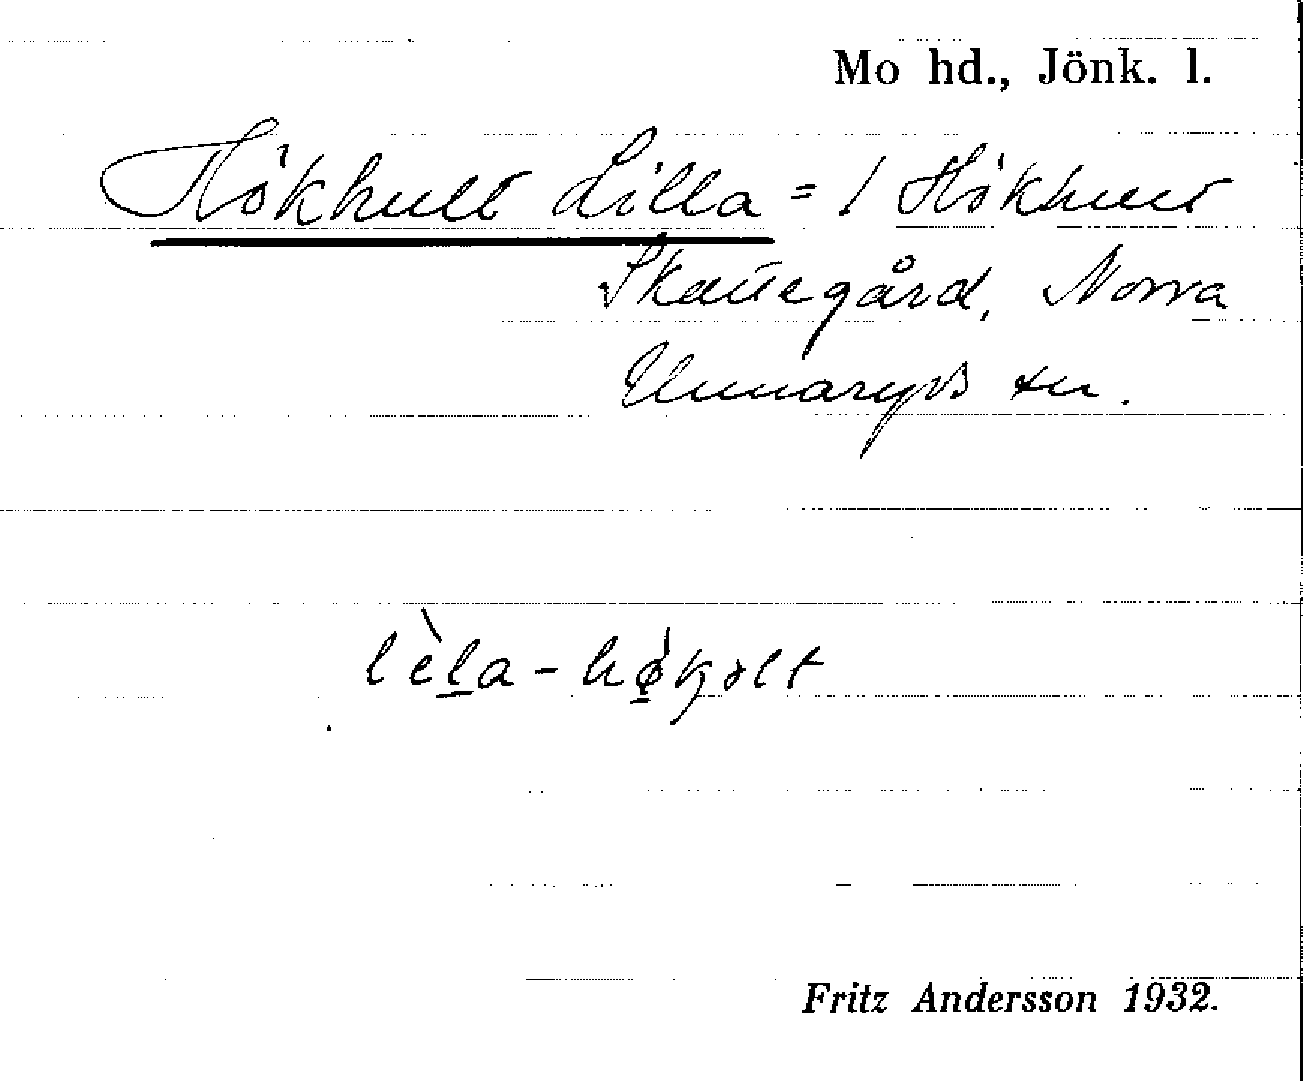 Mo hd., Jönk. l.
Hökhult Lilla = 1 Hökhult
Skattegård, Norra
Unnaryds sn.
lèla - høkolt
Fritz Andersson 1932.